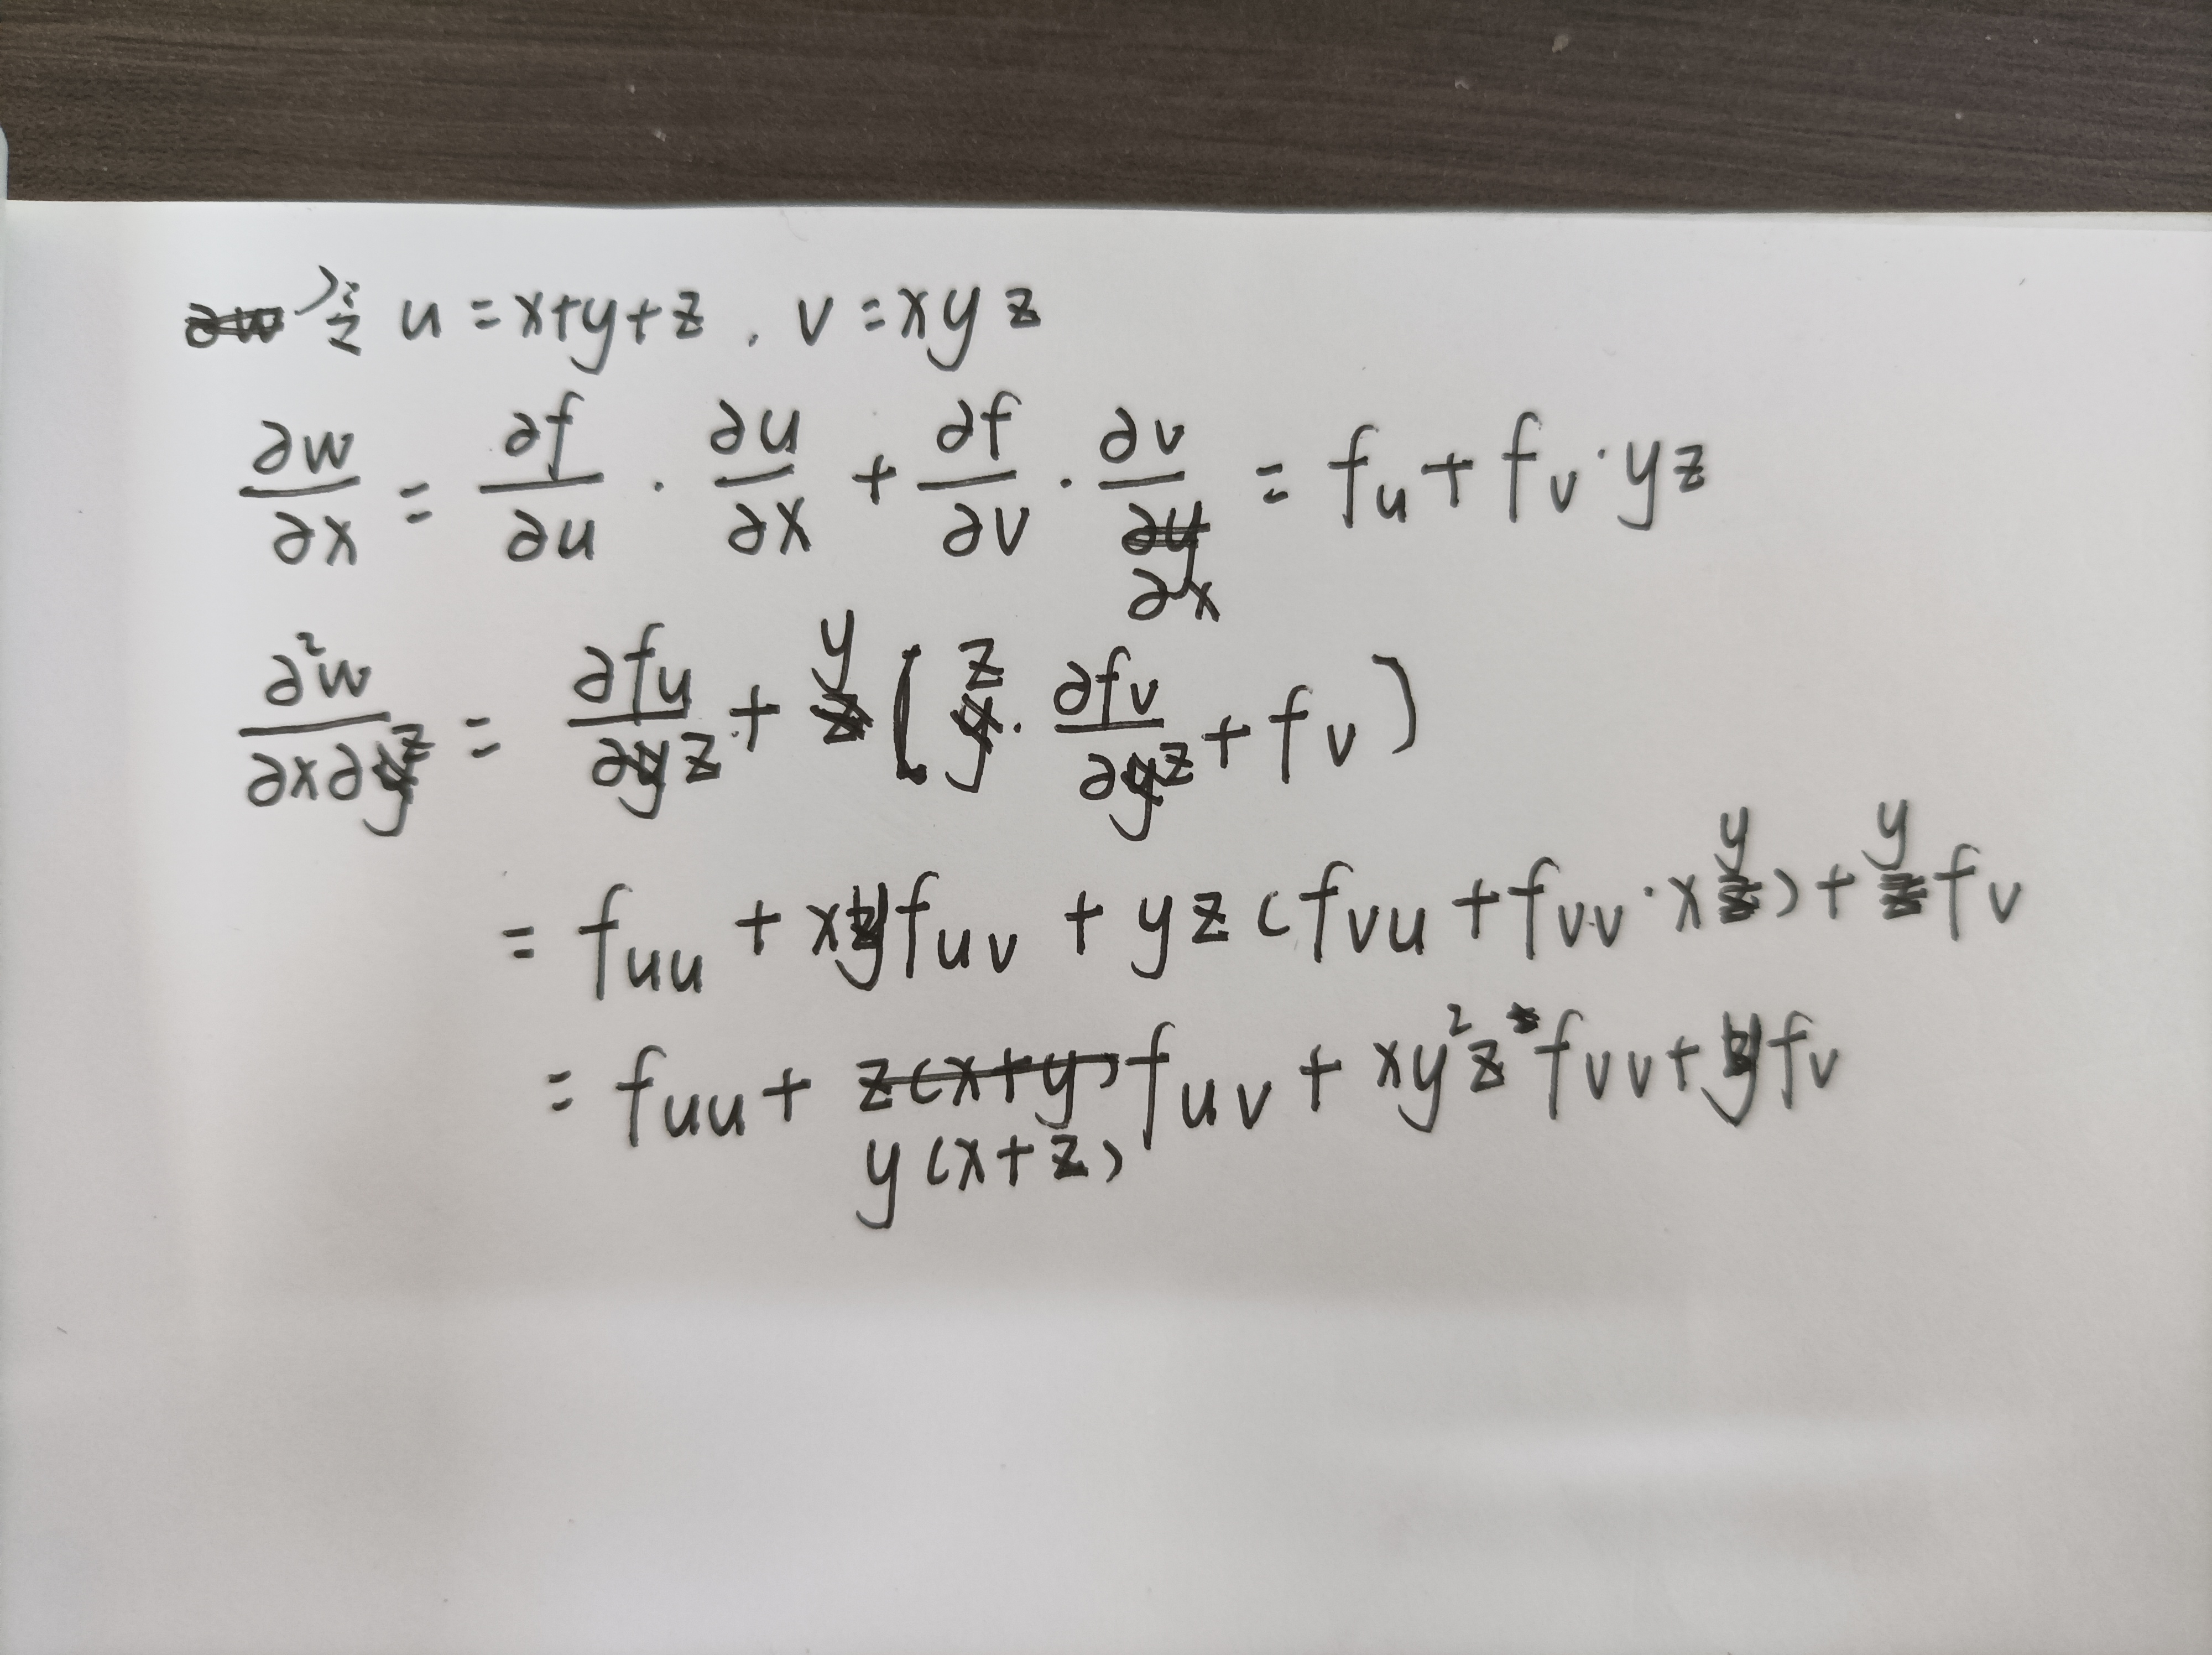 令 u = x+y+z , v = xyz
∂w/∂x = ∂f/∂u · ∂u/∂x + ∂f/∂v · ∂v/∂x = f_u + f_v · yz
∂²w/∂x∂z = ∂f_u/∂z + y [ z · ∂f_v/∂z + f_v )
= f_uu + xy f_uv + yz ( f_vu + f_vv · xy ) + y f_v
= f_uu + y(x+z) f_uv + xy²z f_vv + y f_v